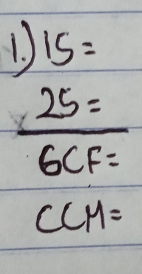 1.) 15=
25=
GCF=
CCM=